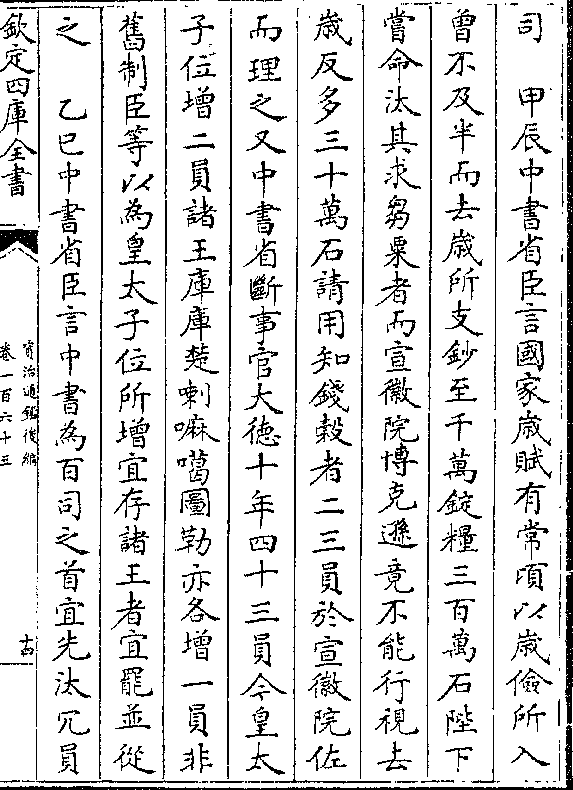 司　甲辰中書省臣言國家歳賦有常頃以歳儉所入
曾不及半而去歳所支鈔至千萬錠糧三百萬石陛下
嘗命汰其求芻粟者而宣徽院博克遜竟不能行視去
歳反多三十萬石請用知錢穀者二三員於宣徽院佐
而理之又中書省斷事官大德十年四十三員今皇太
子位增二員諸王庫庫楚喇嘛噶圖勒亦各增一員非
舊制臣等以為皇太子位所增宜存諸王者宜罷並從
之　乙巳中書省臣言中書為百司之首宜先汰冗員
欽定四庫全書
資治通鑑後編
卷一百六十三
十四